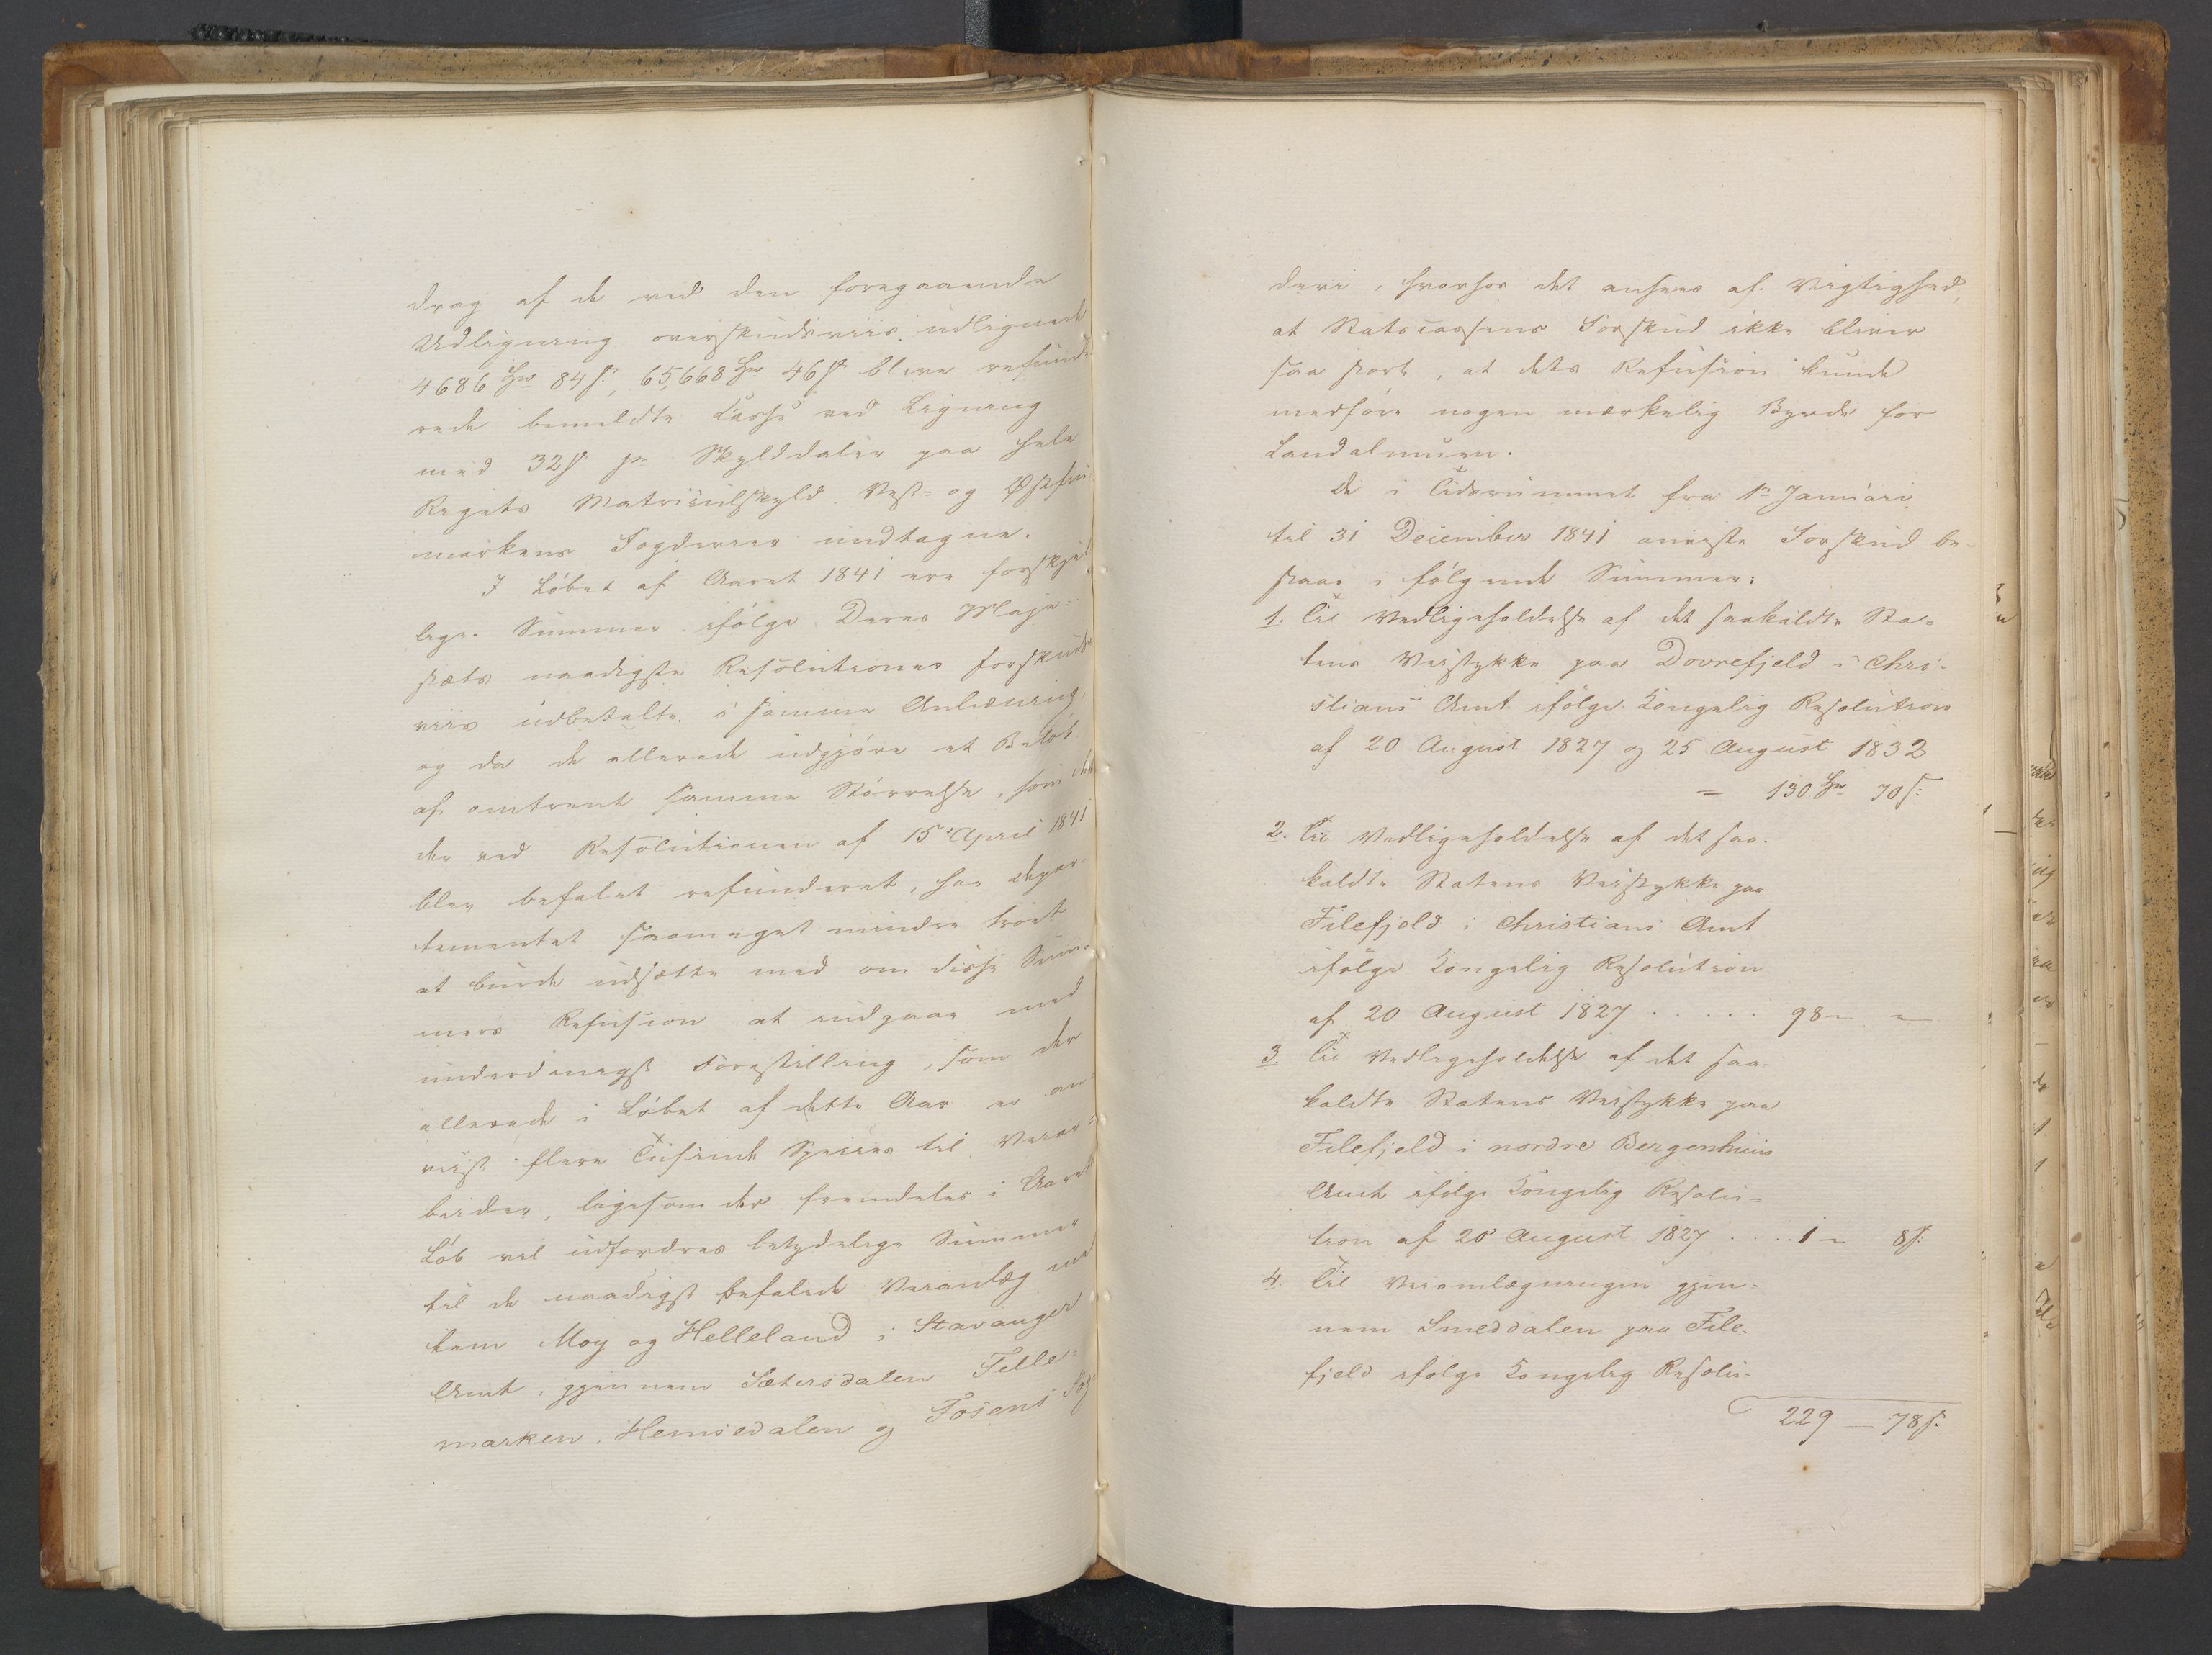 drag af de ved den foregaaende
Udligning overskudsviis udlignede
4686 Spd 84 s., 65,668 Spd 46 s. bleve refunde-
rede bemeldte Casse ved Ligning
med 32 s pr Skylddaler paa hele
Rigets Matriculskyld Vest- og Østfin-
markens Fogderier undtagne.
I Løbet af Aaret 1841 ere forskjel-
lige Summer ifølge Deres Maje-
stæts naadigste Resolutioner forskuds-
viis udbetalte i samme Anledning,
og da de allerede udgjøre et Beløb
af omtrent samme Størrelse, som det
der ved Resolutionen af 15 April 1841
blev befalet refunderet, har Depar-
tementet saameget mindre troet
at burde udsætte med om disse Sum-
mers Refusion at indgaae med
underdanigst Forestilling, som der
allerede i Løbet af dette Aar er an-
viist flere Tusinde Species til Veiar-
beider, ligesom der fremdeles i Aarets
Løb vil udfordres betydelige Summer
til de naadigst befalede Veianlæg mel-
lem Moy og Helleland i Stavanger
Amt, gjennem Sætersdalen Telle-
marken, Hemsedalen og Fosens Fog-
derie, hvorfor det ansees af Vigtighed,
at Statscassens Forskud ikke bliver
saa stort, at dets Refusion kunde
medføre nogen mærkelig Byrde for
Landalmuen.
De i Tidsrummet fra 1n Januari
til 31 December 1841 anviste Forskud be-
staae i følgende Summer:
1. Til Vedligeholdelse af det saakaldte Sta-
tens Veistykke paa Dovrefjeld i Chri-
stians Amt ifølge Kongelig Resolution
af 20 August 1827 og 25 August 1832
= 130 Spd 70 s.
2. Til Vedligeholdelse af det saa-
kaldte Statens Veistykke paa
Filefjeld i Christians Amt
ifølge Kongelig Resolution
af 20 August 1827 . . . . . 98 - -
3. Til Vedligeholdelse af det saa-
kaldte Statens Veistykke paa
Filefjeld i nordre Bergenhuus
Amt ifølge Kongelig Resolu-
tion af 20 August 1827 . . . . 1 - 8 s.
4. Til Veiomlægningen gjen-
nem Smeddalen paa File-
fjeld ifølge Kongelig Resolu-
229 - 78 s.